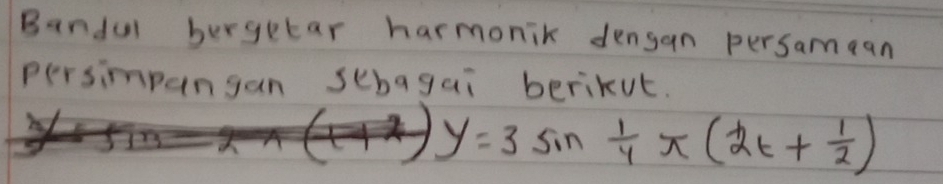 Bandul bergetar harmonik dengan persamaan
persimpangan sebagai berikut.
y = 3 sin 1/4 π (2t + 1/2)